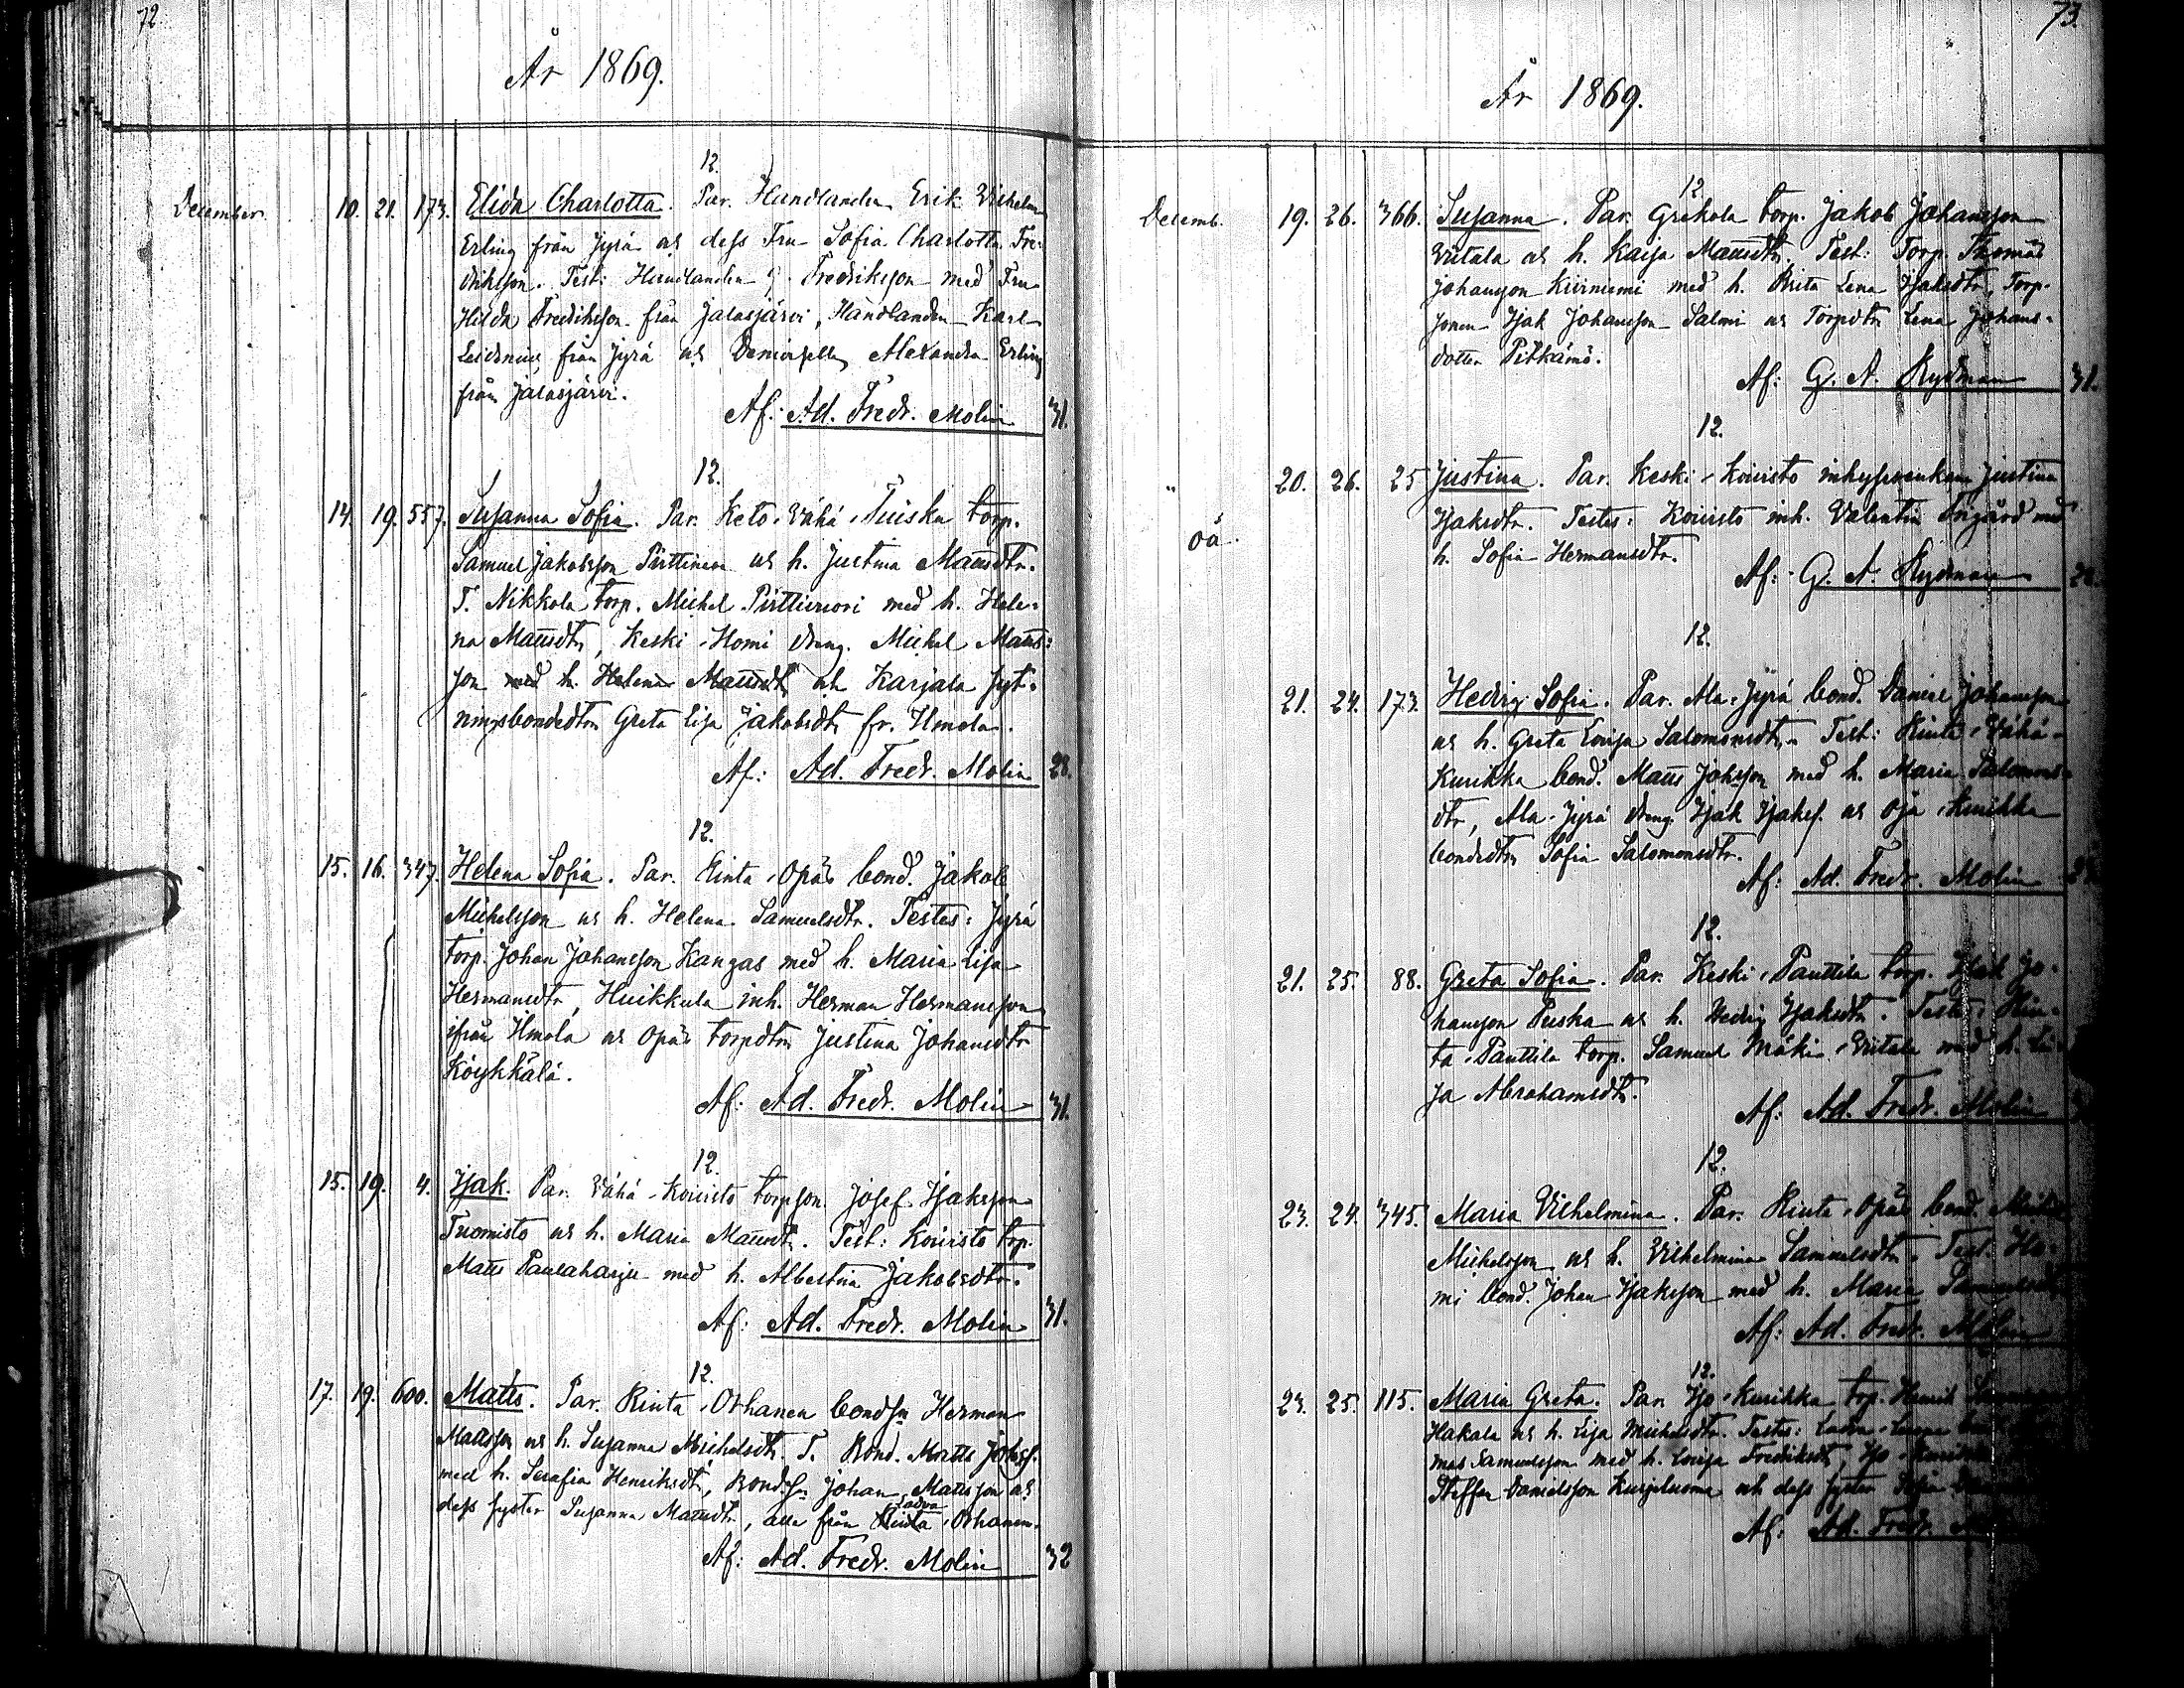 72.
År 1869.
12.
December. 10. 21. 173. Elida Charlotta. Par. Handlanden Erik Vilhelm
Erling från Jyrä och dess Fru Sofia Charlotta Fre-
driksson. Test: Handlanden G. Fredriksson med Fru
Hilda Fredriksson från Jalasjärvi, Handlanden Karl
från Jyrä och Demoiselle Alexandra Erling
från Jalasjärvi.
Af: Ad. Fredr. Molin 31.
12.
14. 19. 557. Susanna Sofia. Par. Keto-Vähä-Tuiska torp.
Samuel Jakobsson Pirttinen och h. Justina Mattsdtr.
T. Nikkola torp. Michel Pirttivuori med h. Hele-
na Mattsdtr, Keski-Homi dreng. Michel Matts-
son med h. Helena Mattsdtr och Karjala syt-
ningsbondedtrn Greta Lisa Jakobsdtr fr. Ilmola.
Af: Ad. Fredr. Molin 28.
12.
15. 16. 347. Helena Sofia. Par. Rinta-Opas bond. Jakob
Michelsson och h. Helena Samuelsdtr. Testes: Jyrä
torp. Johan Johansson Kangas med h. Maria Lisa
Hermansdtr, Huikkula inh. Herman Hermansson
ifrån Ilmola och Opas torpdtrn Justina Johansdtr
Köykkälä.
Af: Ad. Fredr. Molin 31.
12.
15. 19. 4. Isak. Par. Vähä-Koivisto torpson Josef Isaksson
Tuomisto och h. Maria Mattsdtr. Test: Koivisto torp.
Matts Paulaharju med h. Albertina Jakobsdtr.
Af: Ad. Fredr. Molin 31.
12.
17. 19. 600. Matts. Par. Rinta-Orhanen bondsn Herman
Mattsson och h. Susanna Michelsdtr. T. Bond. Matts Johss.
med h. Serafia Henriksdtr, Bondsn Johan Mattsson och
Ladva
dess syster Susanna Mattsdtr, alla från Rinta-Orhanen.
Af: Ad. Fredr. Molin 32
73.
År 1869.
12.
Decemb. 19. 26. 366. Susanna. Par. Grekola torp. Jakob Johansson
Viitala och h. Kaisa Mattsdtr. Test: Torp. Thomas
Johansson Kiviniemi med h. Brita Lena Isaksdtr, Torp-
sonen Isak Johansson Salmi och Torpdtrn Lena Johans-
dotter Pitkämö.
Af: G. A. Rydman 31.
12.
" 20. 26. 25 Justina. Par. Keski-Koivisto inhyseenkan Justina
Isaksdtr. Testes: Koivisto inh. Valentin Frigård med
oä.
h. Sofia Hermansdtr.
Af: G. A. Rydman
12.
21. 24. 173. Hedvig Sofia. Par. Ala-Jyrä bond. Daniel Johansson
och h. Greta Lovisa Salomonsdtr. Test: Rinta-Vähä-
Kurikka bond. Matts Johsson med h. Maria Salomons-
dtr, Ala-Jyrä dreng Isak Isakss. och Oja-Kurikka
bondedtrn Sofia Salomonsdtr.
Af: Ad. Fredr. Molin
12.
21. 25. 88. Greta Sofia. Par. Keski-Panttila torp. Isak Jo-
hansson Puska och h. Hedvig Isaksdtr. Testes: Rin-
ta-Panttila torp. Samuel Mäki-Viitala med h. Li-
sa Abrahamsdtr.
Af: Ad. Fredr. Molin
12.
23. 24. 345. Maria Vilhelmina. Par. Rinta-Opas bond.
Michelsson och h. Vilhelmina Samuelsdtr. Test. Ho-
mi bond. Johan Isaksson med h. Maria Samuelsdtr
Af: Ad. Fredr. Molin
12.
23. 25. 115. Maria Greta. Par. Iso-Kurikka torp. Henrik
Hakala och h. Lisa Michelsdtr. Testes:
mas Samuelsson med h. Lovisa Fredriksdtr, Iso-Kurikka
Steffan Danielsson Kurjeluoma och dess syster Sofia
Af: Ad. Fredr.